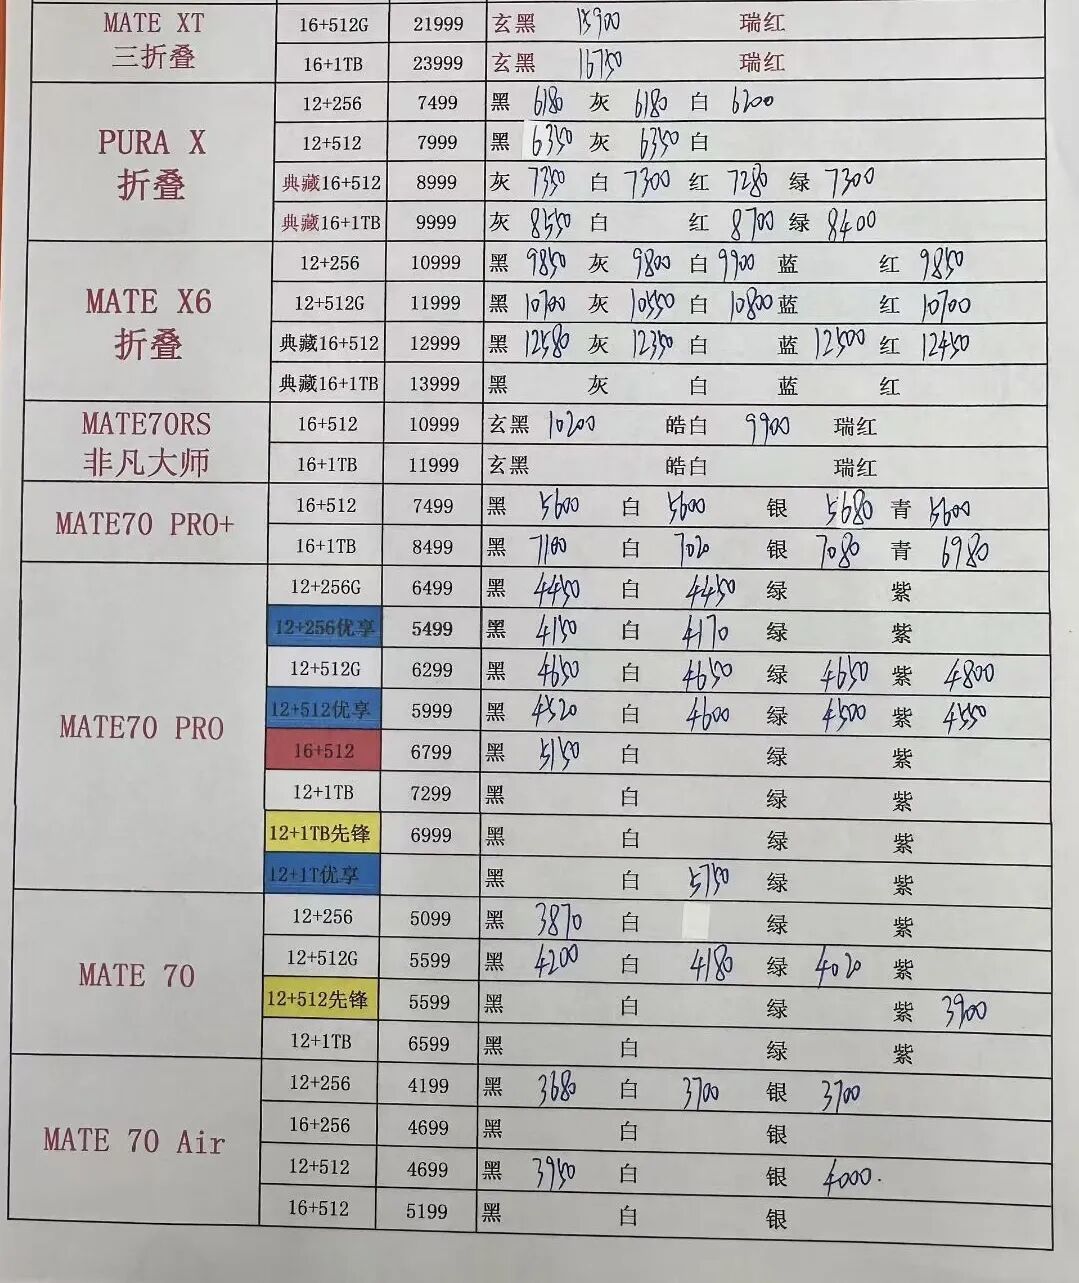 MATE XT 三折叠
16+512G 21999 玄黑 15900 瑞红
16+1TB 23999 玄黑 16750 瑞红
PURA X 折叠
12+256 7499 黑 6180 灰 6180 白 6200
12+512 7999 黑 6350 灰 6350 白
典藏16+512 8999 灰 7350 白 7300 红 7280 绿 7300
典藏16+1TB 9999 灰 8550 白 红 8700 绿 8400
MATE X6 折叠
12+256 10999 黑 9850 灰 9800 白 9900 蓝 红 9850
12+512G 11999 黑 10700 灰 10550 白 10800 蓝 红 10700
典藏16+512 12999 黑 12580 灰 12350 白 蓝 12500 红 12450
典藏16+1TB 13999 黑 灰 白 蓝 红
MATE70RS 非凡大师
16+512 10999 玄黑 10200 皓白 9900 瑞红
16+1TB 11999 玄黑 皓白 瑞红
MATE70 PRO+
16+512 7499 黑 5600 白 5600 银 5680 青 5600
16+1TB 8499 黑 7100 白 7020 银 7080 青 6980
MATE70 PRO
12+256G 6499 黑 4450 白 4450 绿 紫
12+256优享 5499 黑 4150 白 4170 绿 紫
12+512G 6299 黑 4650 白 4650 绿 4650 紫 4800
12+512优享 5999 黑 4520 白 4600 绿 4500 紫 4550
16+512 6799 黑 5150 白 绿 紫
12+1TB 7299 黑 白 绿 紫
12+1TB先锋 6999 黑 白 绿 紫
12+1T优享 黑 白 5750 绿 紫
MATE 70
12+256 5099 黑 3870 白 绿 紫
12+512G 5599 黑 4200 白 4180 绿 4020 紫
12+512先锋 5599 黑 白 绿 紫 3900
12+1TB 6599 黑 白 绿 紫
MATE 70 Air
12+256 4199 黑 3680 白 3700 银 3700
16+256 4699 黑 白 银
12+512 4699 黑 3950 白 银 4000.
16+512 5199 黑 白 银